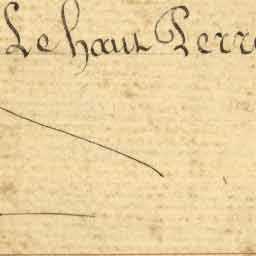 Le haut Perr